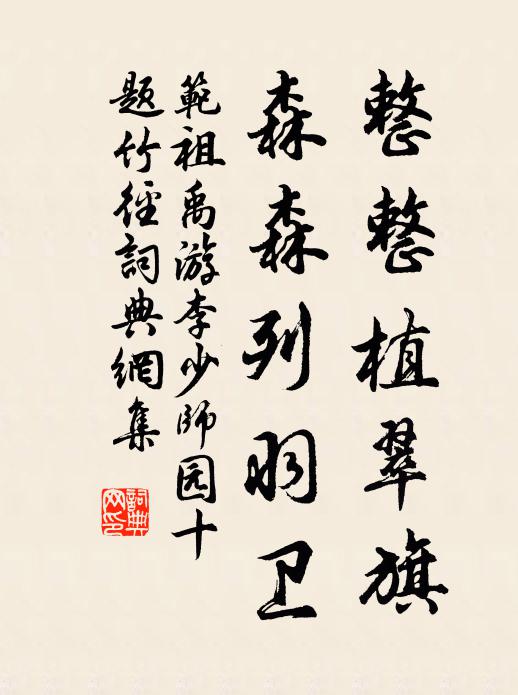 整整植翠旗
森森列羽卫
範祖禹游李少师园十
题竹径詞典網集
詞典网印